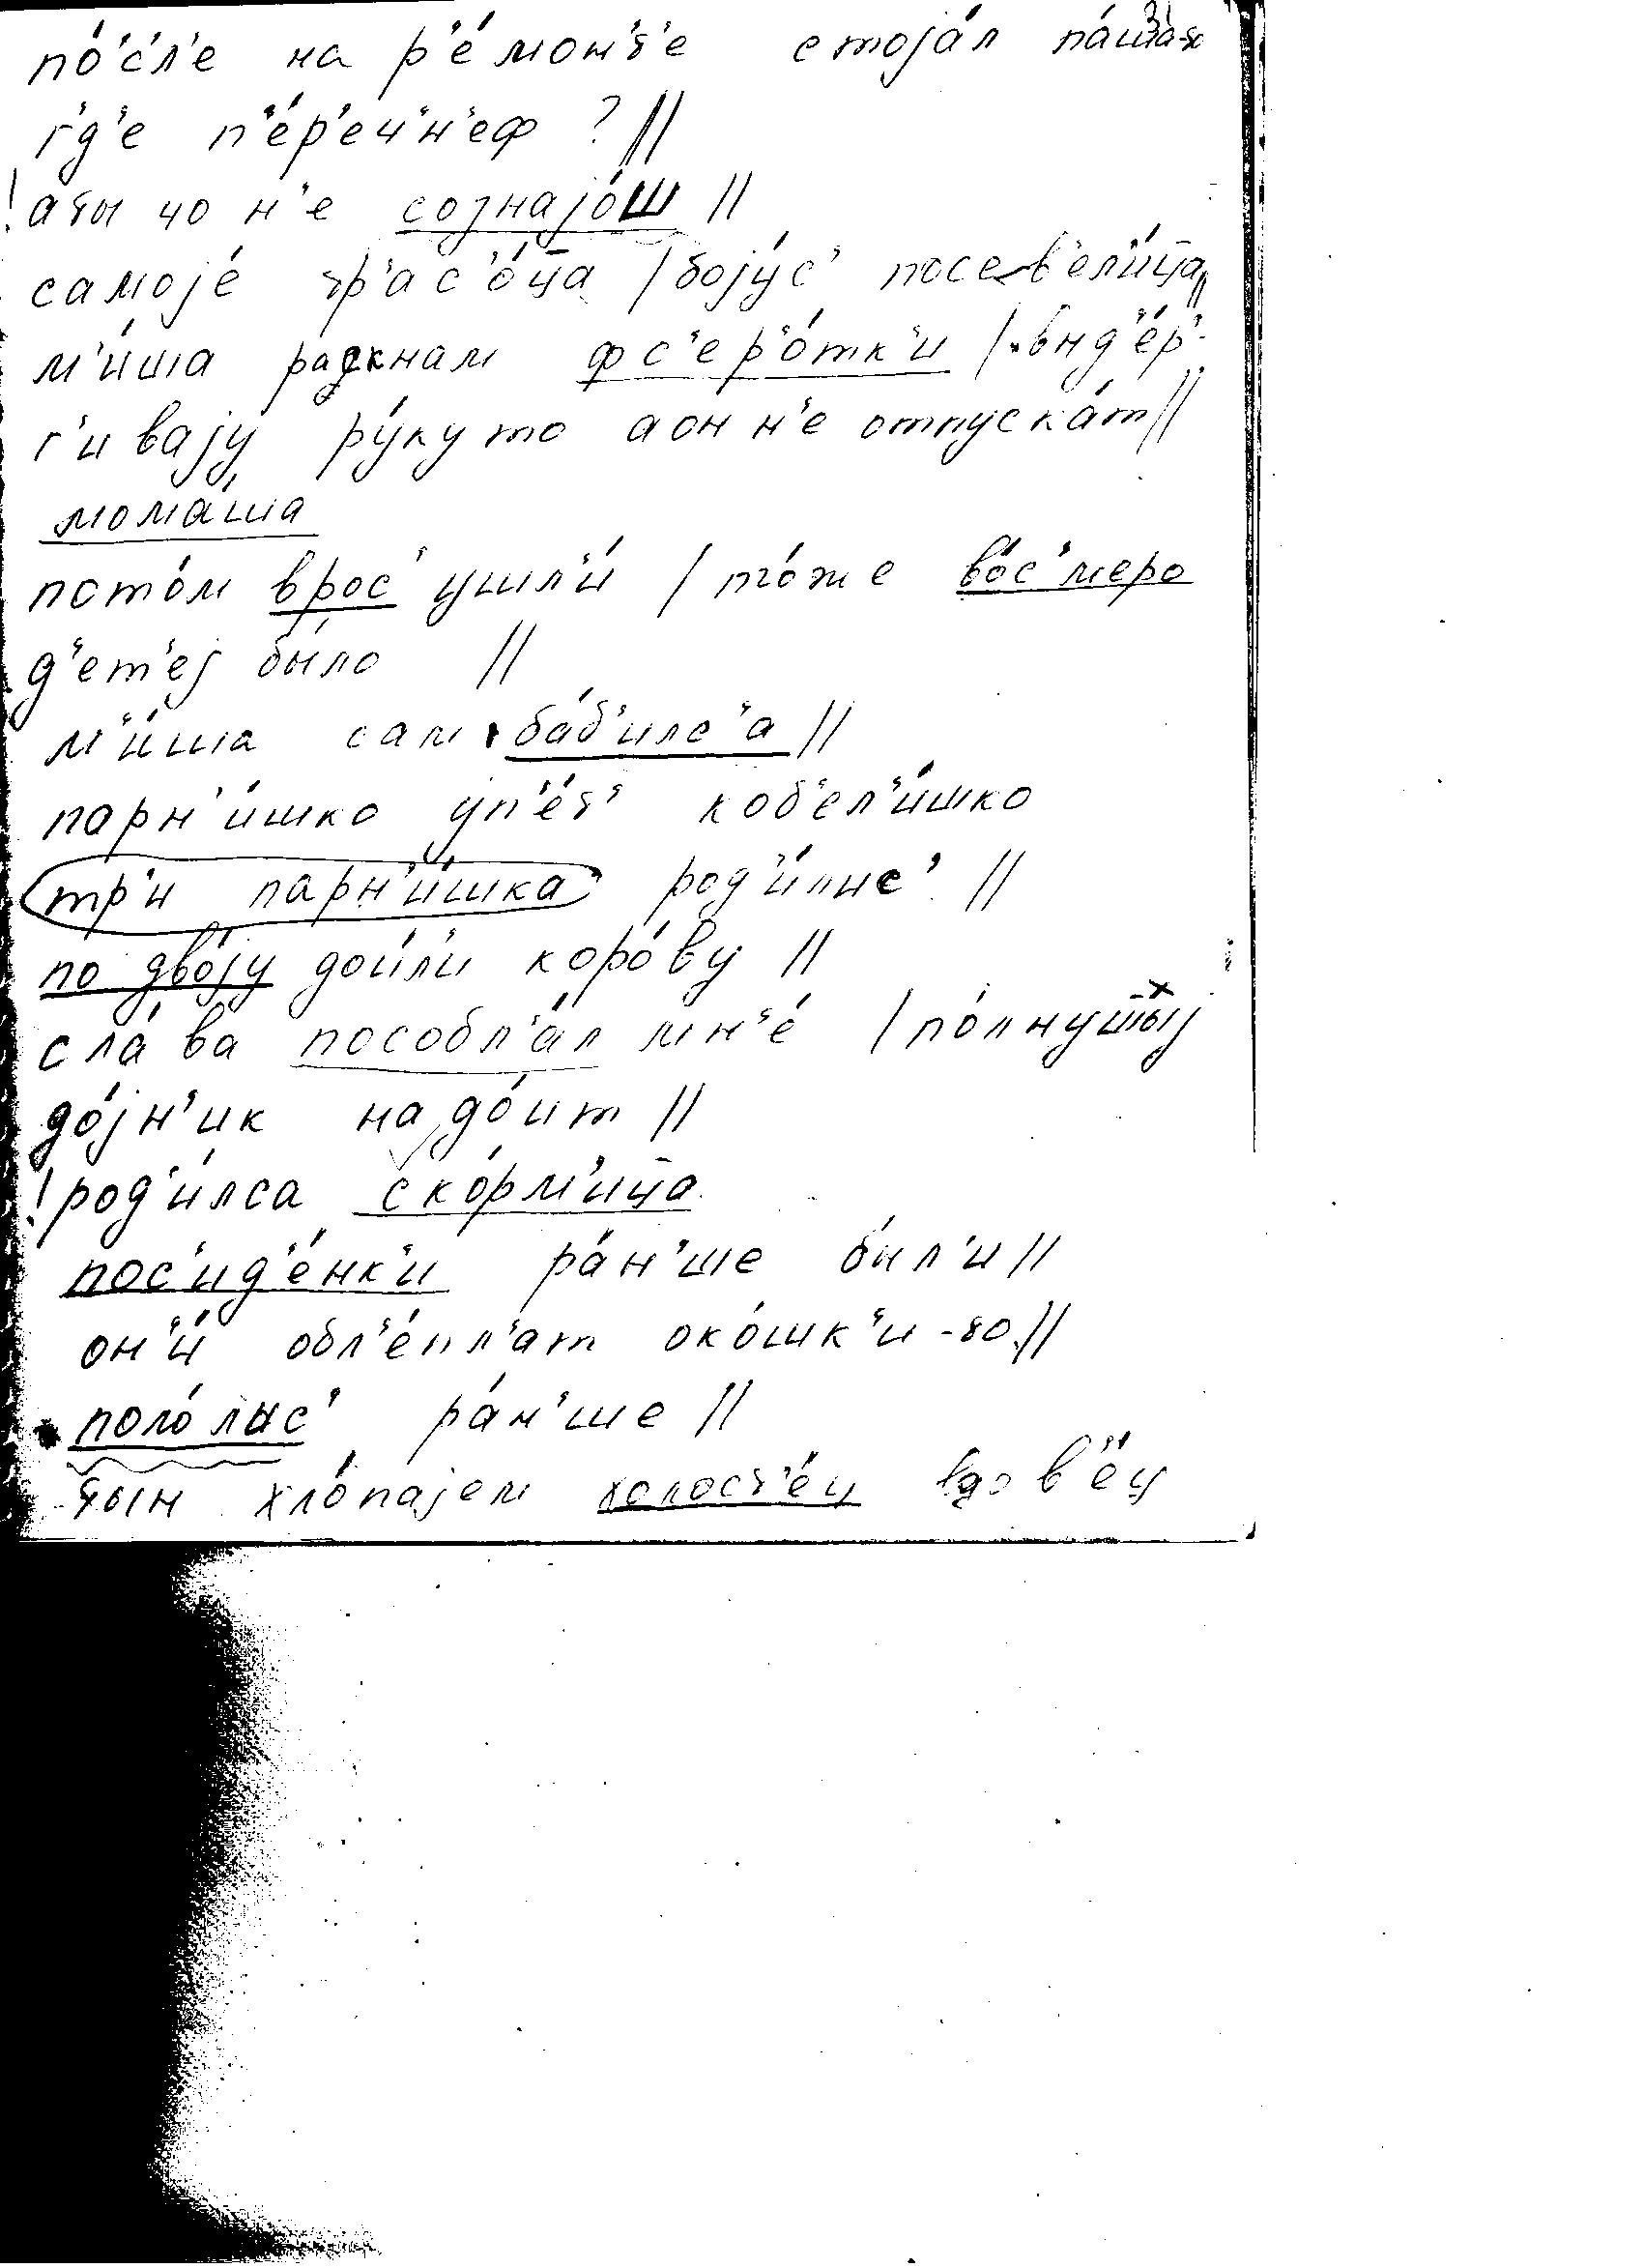 по́с'л'е на р'е́монт'е стоја́л
г'д'е п'е́р'еч'н'еф ? //
! а ты чо н'е сознајо́ш //
самоје́ тр'ас'о́ца / боју́с' посев'ел'и́ца //
м'и́ша рад к нам ф с'ер'о́тк'и / выд'е́р-
г'ивају ру́ку то а он н'е отпуска́т //
мома́ша
пото́м врос' ушл'и́ / то́же во́с'меро
д'ет'еј бы́ло //
м'и́ша сам ба́б'илс'а //
парн'и́шко уп'е́т' коб'ел'и́шко
тр'и парн'и́шка род'и́лис' //
по дво́ју дои́л'и коро́ву //
сла́ва пособл'а́л мн'е́ / по́лнушшыј
до́јн'ик надо́ит //
! род'и́лса ско́рм'ица
пос'ид'е́нк'и ра́н'ше бы́л'и //
он'и́ обл'е́пл'ат око́шк'и-то //
поло́лыс' ра́н'ше //
тын хло́пајем холост'е́ц вдов'е́ц